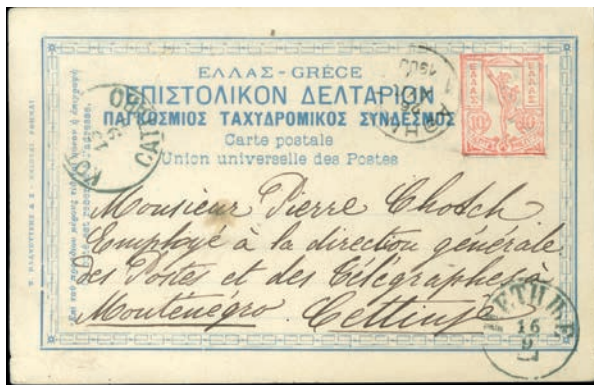 ΕΛΛΑΣ - GRÈCE
ΕΠΙΣΤΟΛΙΚΟΝ ΔΕΛΤΑΡΙΟΝ
ΠΑΓΚΟΣΜΙΟΣ ΤΑΧΥΔΡΟΜΙΚΟΣ ΣΥΝΔΕΣΜΟΣ
Carte postale
Union universelle des Postes
ΕΛΛΑΣ
ΕΛΛΑΣ
10
10
1900
CAT
Monsieur Pierre Chotch
Employé à la direction générale
des Postes et des Télégraphes à
Monténégro. Cettinje
ЦЕТИЊЕ
16
9